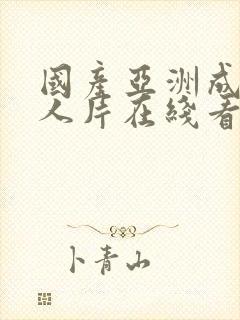 國產亞洲成
人片在綫看
卜青山